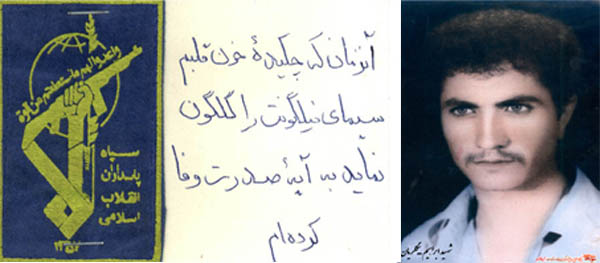 واعدوا لهم ما استطعتم من قوة
سپاه
پاسداران
انقلاب
اسلامی
آنزمان که چکیدهٔ خون قلبم
سیمای نیلگونت را گلگون
نماید به آیهٔ صدرت وفا
کرده‌ام
شهید ابراهیم